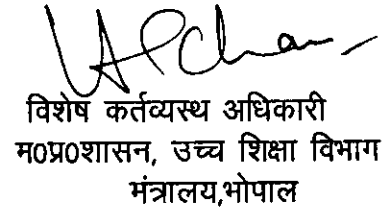 विशेष कर्तव्यस्थ अधिकारी
म0प्र0शासन, उच्च शिक्षा विभाग
मंत्रालय,भोपाल